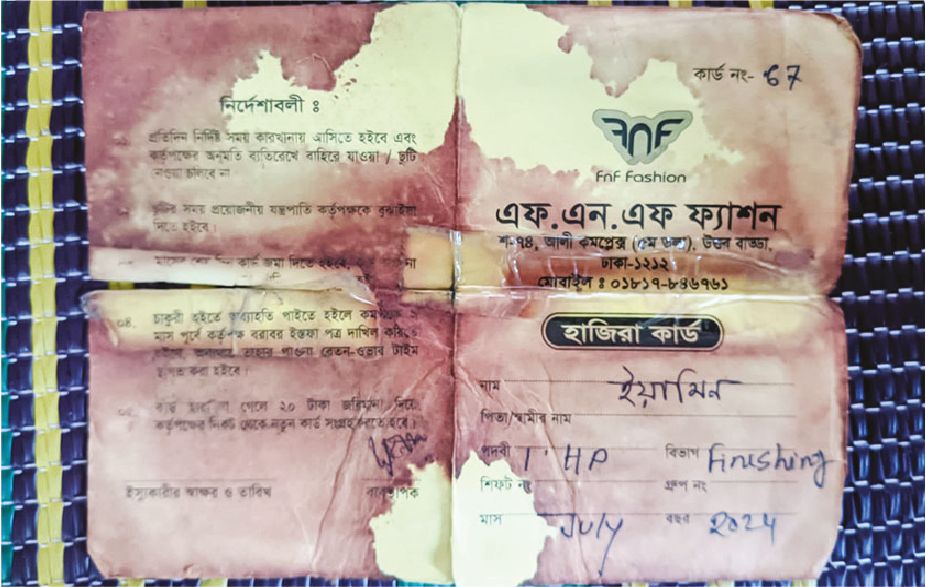 নির্দেশাবলী :
প্রতিদিন নির্দিষ্ট সময় কারখানায় আসিতে হইবে এবং
কর্তৃপক্ষের অনুমতি ব্যতিরেখে বাহিরে যাওয়া / ছুটি
নেওয়া চলিবে না
ছুটির সময় প্রয়োজনীয় যন্ত্রপাতি কর্তৃপক্ষকে বুঝাইয়া
দিতে হইবে।
কার্ড জমা দিতে হইবে,
০৪. চাকুরী হইতে অব্যাহতি পাইতে হইলে কমপক্ষে ২
মাস পূর্বে কর্তৃপক্ষ বরাবর ইস্তফা পত্র দাখিল করিতে
তাহার পাওনা বেতন-ওভার টাইম
স্থগিত করা হইবে।
কার্ড হারা গেলে ২০ টাকা জরিমানা দিয়ে
কর্তৃপক্ষের নিকট থেকে নতুন কার্ড সংগ্রহ করতে হবে।
ইস্যুকারীর স্বাক্ষর ও তারিখ ব্যবস্থাপক
কার্ড নং- 67
FNF
FnF Fashion
এফ.এন.এফ ফ্যাশন
শ-৭৪, আলী কমপ্লেক্স (৫ম তলা), উত্তর বাড্ডা,
ঢাকা-১২১২
মোবাইল : ০১৮১৭-৮৪৬৭৬১
হাজিরা কার্ড
নাম ইয়ামিন
পিতা/স্বামীর নাম
পদবী I HP বিভাগ Finishing
শিফট নং গ্রুপ নং
মাস July বছর ২০২৪